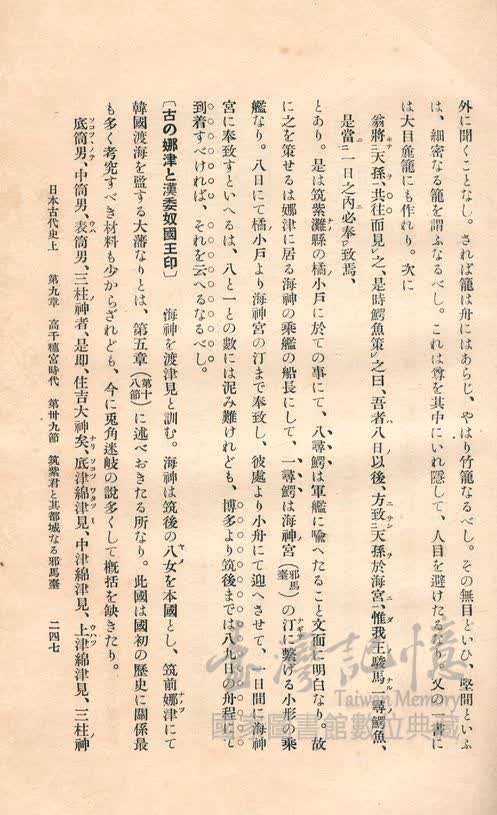 外に聞くことなし。されば籠は舟にはあらじ、やはり竹籠なるべし。その無目といひ、堅間といふ
は、細密なる籠を謂ふなるべし。これは尊を其中にいれ隱して、人目を避けたるなり。又の一書に
は大目麁籠にも作れり。次に
翁將三天孫、共往而見レ之、是時鰐魚策レ之曰、吾者八日以後、方致三天孫於海宮、惟我王駿馬一尋鰐魚、
是當二一日之內必奉レ致焉、
とあり。是は筑紫灘縣の橘小戶に於ての事にて、八尋鰐は軍艦に喩へたること文面に明白なり。故
に之を策せるは娜津に居る海神の乘艦の船長にして、一尋鰐は海神宮(邪馬臺)の汀に繋ける小形の乘
艦なり。八日にて橘小戶より海神宮の汀まで奉致し、彼處より小舟にて迎へさせて、一日間に海神
宮に奉致すといへるは、八と一との數には泥み難けれども、博多より筑後までは八九日の舟程にて
到着すべければ、それを云へるなるべし。
〔古の娜津と漢委奴國王印〕 海神を渡津見と訓む。海神は筑後の八女を本國とし、筑前娜津にて
韓國渡海を監する大藩なりとは、第五章(第十八節)に述べおきたる所なり。此國は國初の歷史に關係最
も多く考究すべき材料も少からざれども、今に兎角迷岐の說多くして槪括を缺きたり。
底筒男、中筒男、表筒男、三柱神者、是即、住吉大神矣、底津綿津見、中津綿津見、上津綿津見、三柱神
日本古代史上 第九章 高千穗宮時代 第卅九節 筑紫君と其都城なる邪馬臺 二四七
臺灣記憶
Taiwan Memory
國家圖書館數位典藏